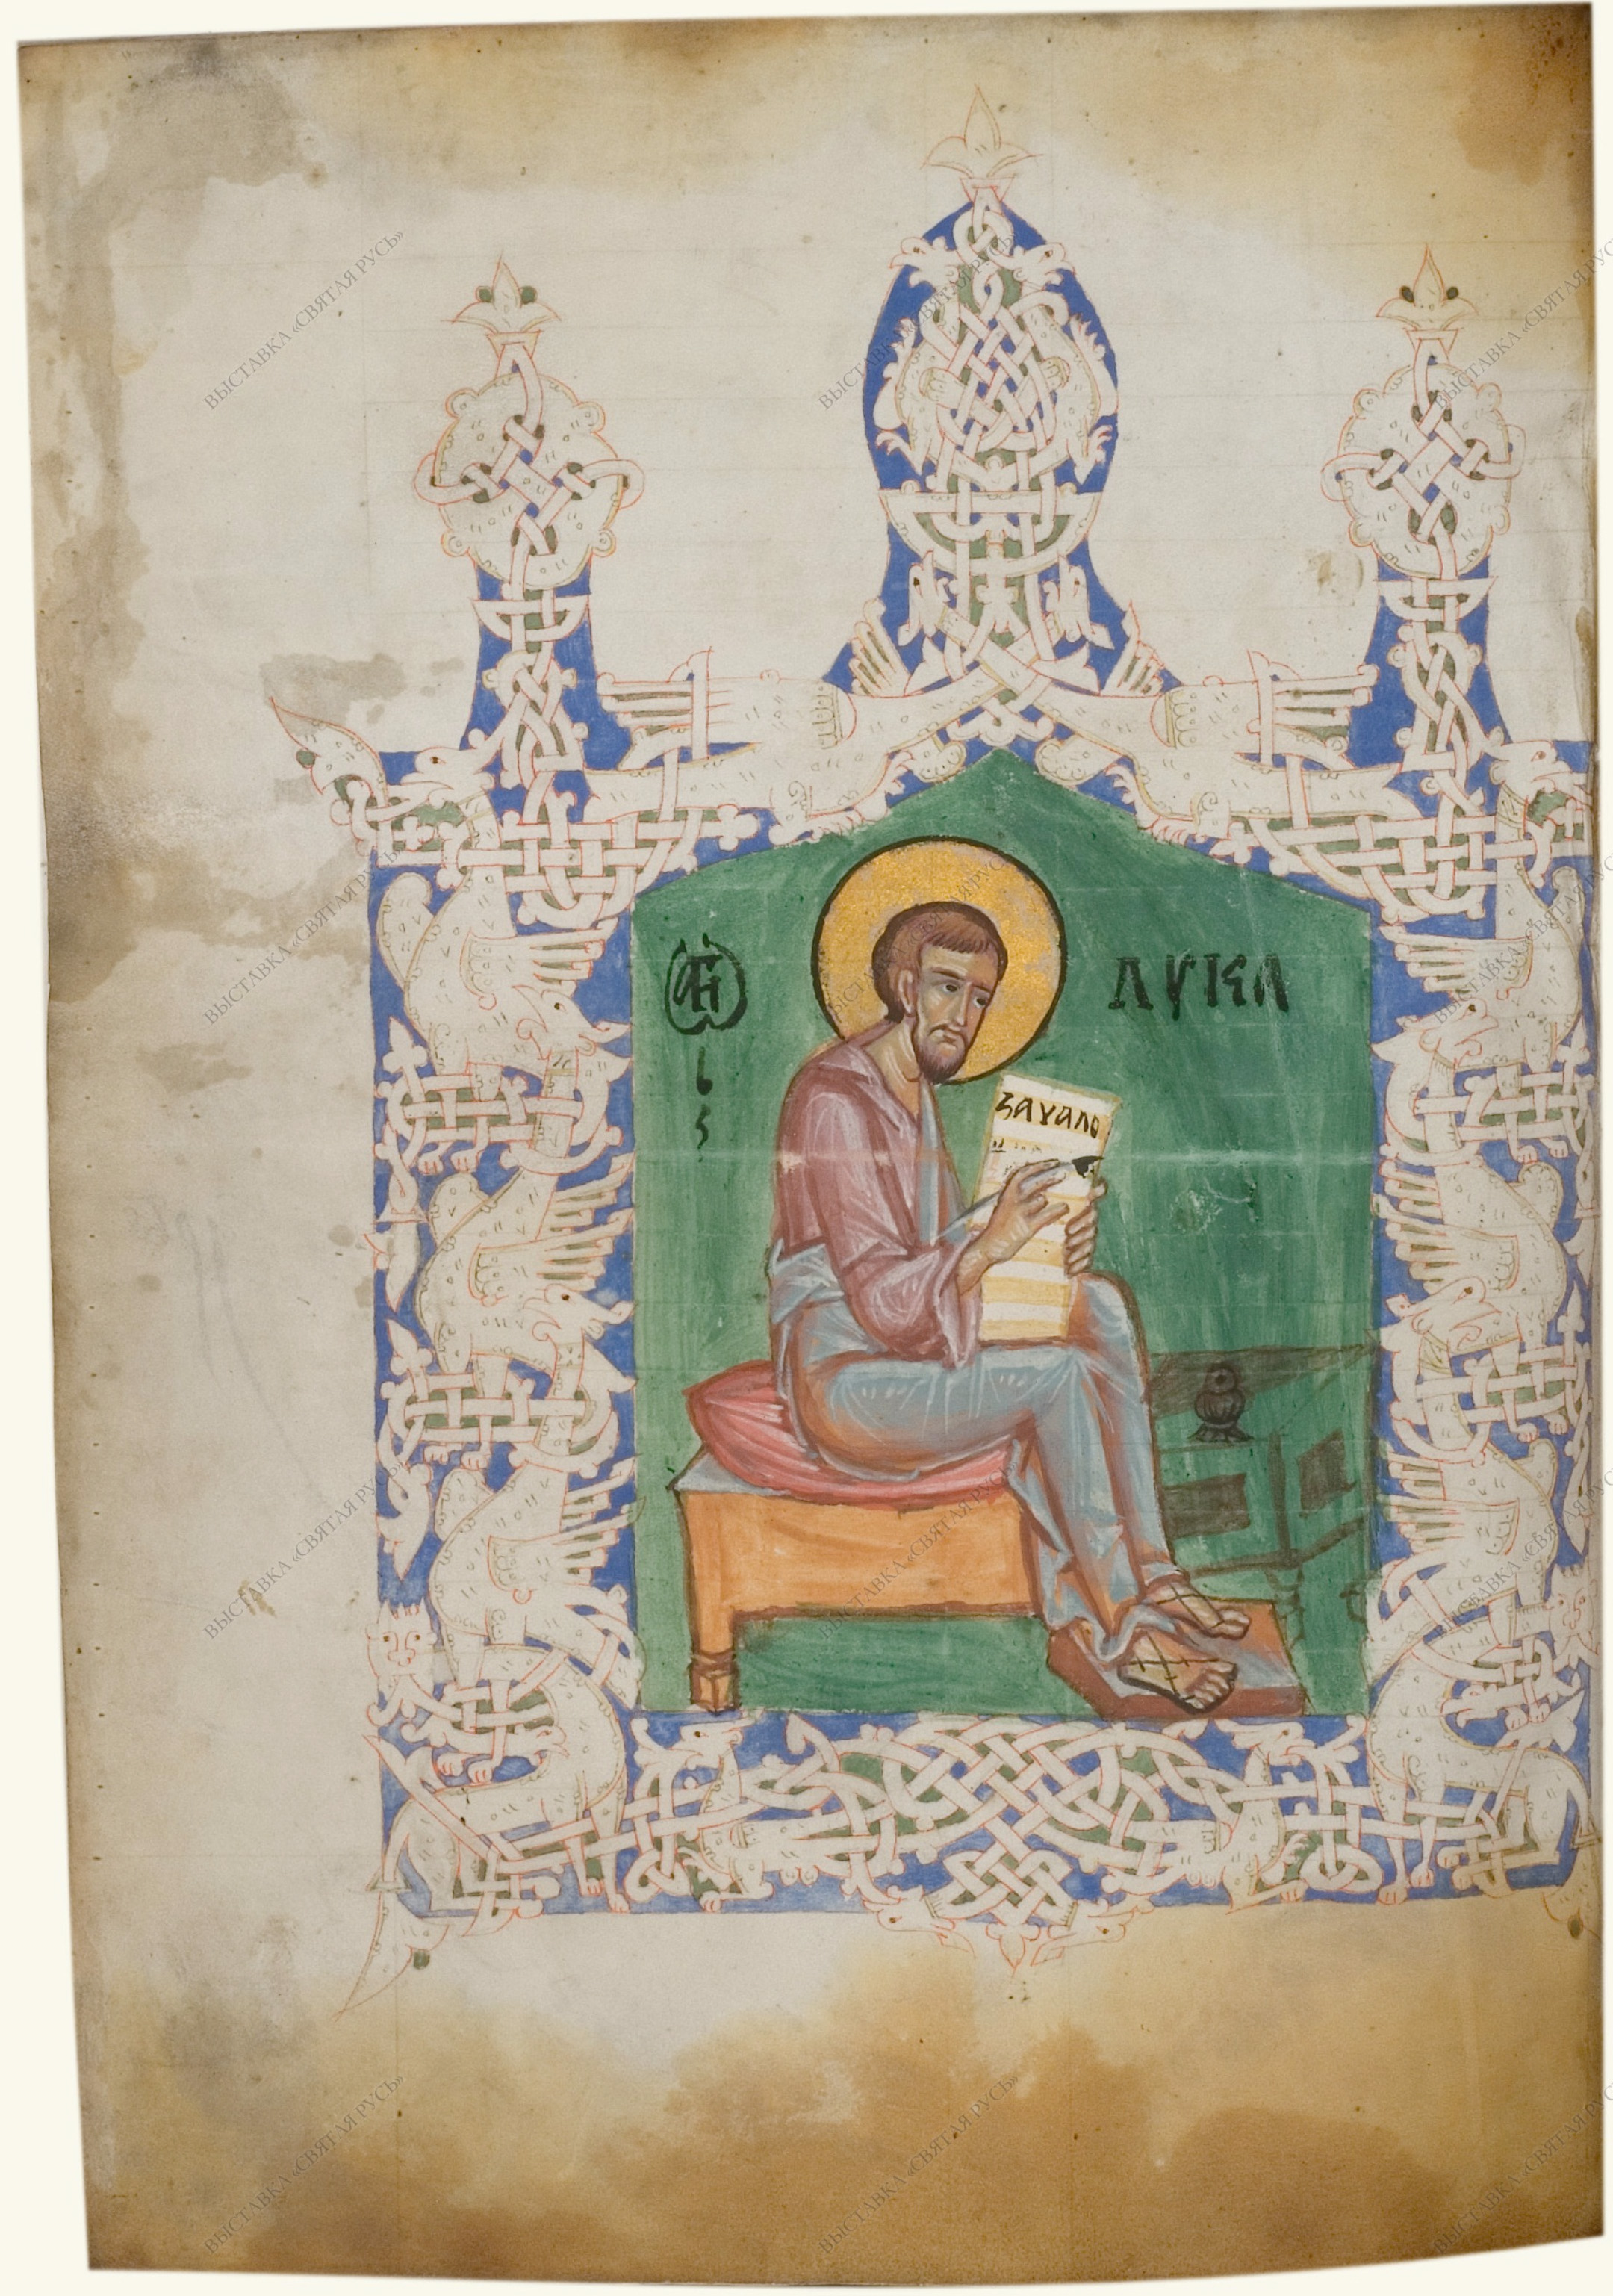 ЛУКА
ЗАЧАЛО
ВЫСТАВКА «СВЯТАЯ РУСЬ»